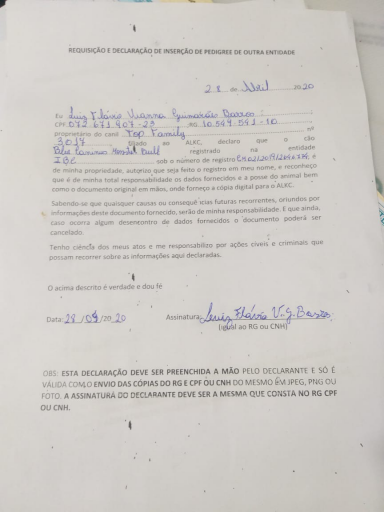 REQUISIÇÃO E DECLARAÇÃO DE INSERÇÃO DE PEDIGREE DE OUTRA ENTIDADE
28 de Abril 2020
Eu Luiz Flávio Vianna Guimarães Barros
CPF 072 671 907-20 RG 10 549 541-10
proprietário do canil Top Family nº
3017 filiado ao ALKC, declaro que o cão
Blue registrado na entidade
IBC sob o número de registro é
de minha propriedade, autorizo que seja feito o registro em meu nome, e reconheço
que é de minha total responsabilidade os dados fornecidos e a posse do animal bem
como o documento original em mãos, onde forneço a cópia digital para o ALKC.
Sabendo-se que quaisquer causas ou consequências futuras recorrentes, oriundos por
informações deste documento fornecido, serão de minha responsabilidade. E que ainda,
caso ocorra algum desencontro de dados fornecidos o documento poderá ser
cancelado.
Tenho ciência dos meus atos e me responsabilizo por ações cíveis e criminais que
possam recorrer sobre as informações aqui declaradas.
O acima descrito é verdade e dou fé
Data 28/04/2020 Assinatura: Luiz Flávio V. G. Barros
(igual ao RG ou CNH)
OBS: ESTA DECLARAÇÃO DEVE SER PREENCHIDA A MÃO PELO DECLARANTE E SÓ É
VÁLIDA COM O ENVIO DAS CÓPIAS DO RG E CPF OU CNH DO MESMO EM JPEG, PNG OU
FOTO. A ASSINATURA DO DECLARANTE DEVE SER A MESMA QUE CONSTA NO RG CPF
OU CNH.